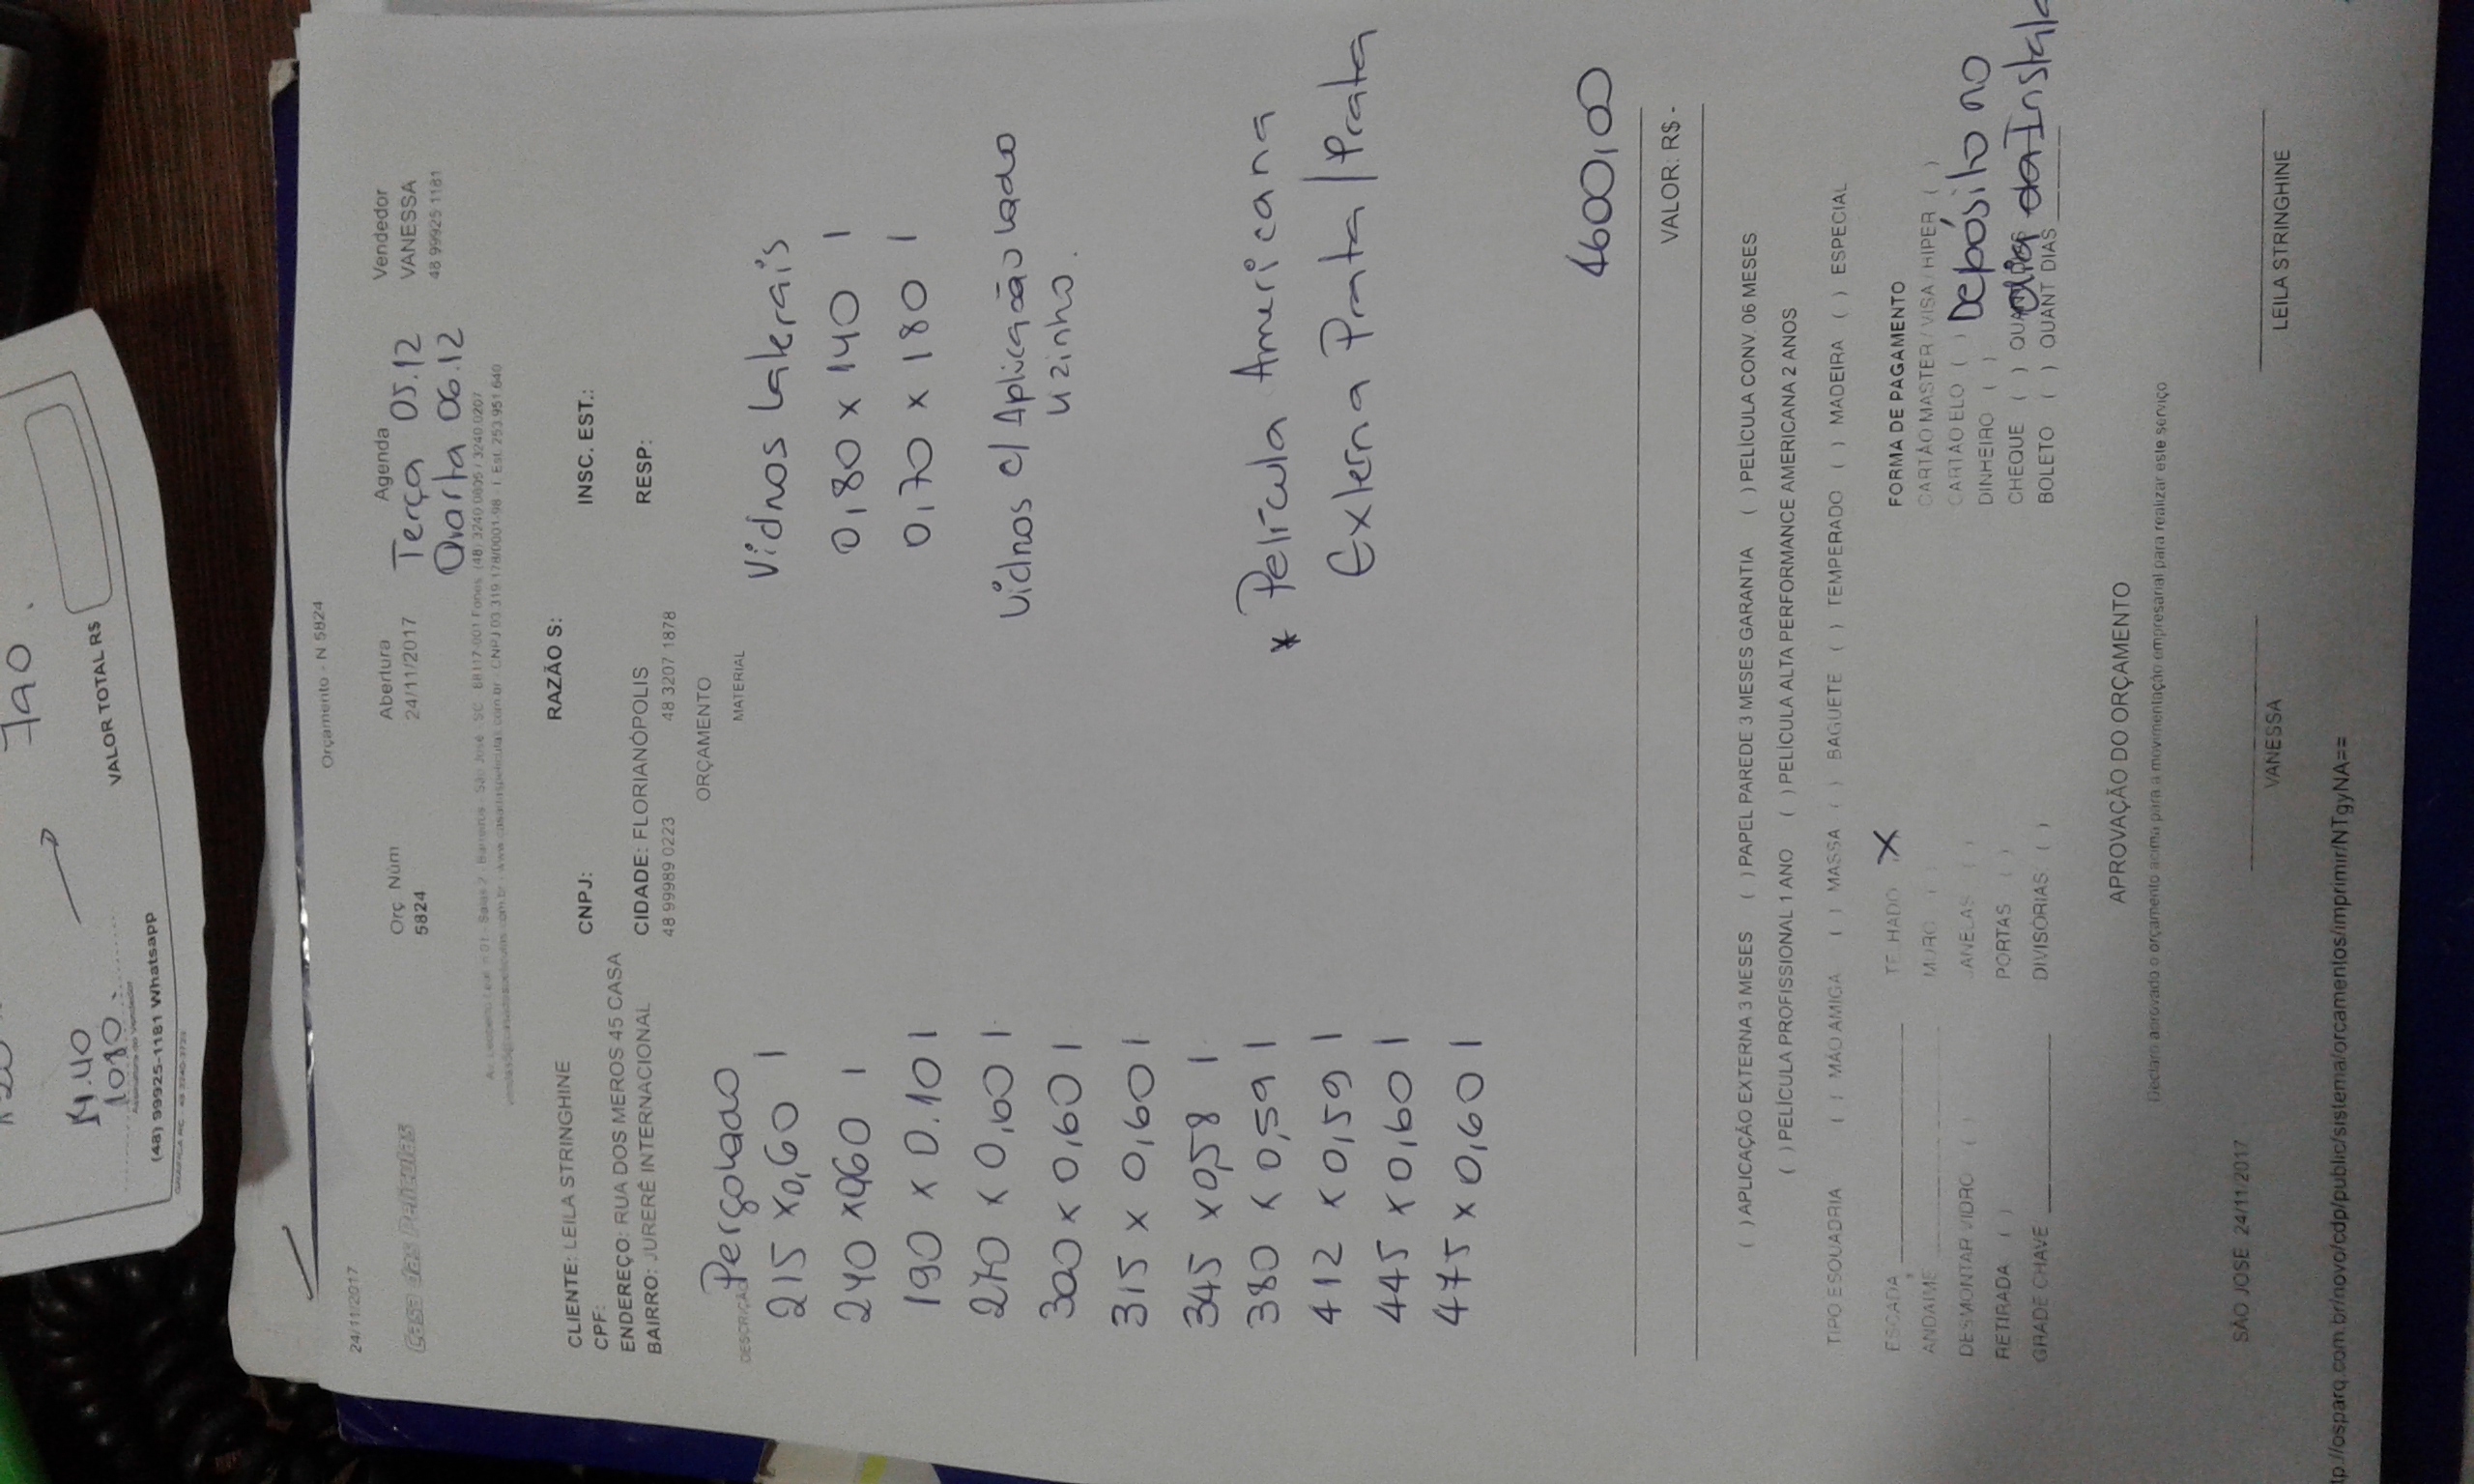 Orçamento - N 5824
24/11/2017
Casa das Películas
Orç Núm
5824
Abertura
24/11/2017
Agenda
Terça 05.12
Quarta 06.12
Vendedor
VANESSA
48 99925 1181
CLIENTE: LEILA STRINGHINE
RAZÃO S:
CPF:
CNPJ:
INSC. EST.:
ENDEREÇO: RUA DOS MEROS 45 CASA
BAIRRO: JURERÊ INTERNACIONAL
CIDADE: FLORIANÓPOLIS
RESP:
48 99989 0223
48 3207 1878
ORÇAMENTO
DESCRIÇÃO
MATERIAL
Pergolado
215 x 0,60 1
240 x 0,60 1
190 x 0.10 1
270 x 0,60 1
300 x 0,60 1
315 x 0,60 1
345 x 0,58 1
380 x 0,59 1
412 x 0,59 1
445 x 0,60 1
475 x 0,60 1
Vidros Laterais
0,80 x 140 1
0,70 x 180 1
Vidros c/ Aplicação lado
uzinho.
* Película Americana
Externa Prata/Prata
4600,00
VALOR: R$ -
( ) APLICAÇÃO EXTERNA 3 MESES ( ) PAPEL PAREDE 3 MESES GARANTIA ( ) PELÍCULA CONV. 06 MESES
( ) PELÍCULA PROFISSIONAL 1 ANO ( ) PELÍCULA ALTA PERFORMANCE AMERICANA 2 ANOS
TIPO ESQUADRIA ( ) MÃO AMIGA ( ) MASSA ( ) BAGUETE ( ) TEMPERADO ( ) MADEIRA ( ) ESPECIAL
ESCADA
TELHADO X
ANDAIME
MURO ( )
DESMONTAR VIDRO ( )
JANELAS ( )
RETIRADA ( )
PORTAS ( )
GRADE CHAVE
DIVISÓRIAS ( )
FORMA DE PAGAMENTO
CARTÃO MASTER / VISA / HIPER ( )
CARTÃO ELO ( )
DINHEIRO ( )
CHEQUE ( )
BOLETO ( ) QUANT DIAS
Depósito no
dia da Instala
APROVAÇÃO DO ORÇAMENTO
Declaro aprovado o orçamento acima para a movimentação empresarial para realizar este serviço
SÃO JOSÉ 24/11/2017
VANESSA
LEILA STRINGHINE
tp://osparq.com.br/novo/cdp/public/sistema/orcamentos/imprimir/NTgyNA==
790.
VALOR TOTAL R$
1080
Assinatura do Vendedor
(48) 99925-1181 Whatsapp